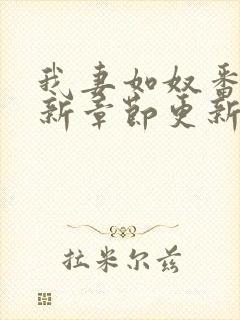 我妻如奴番
新章节更新
拉米尔兹